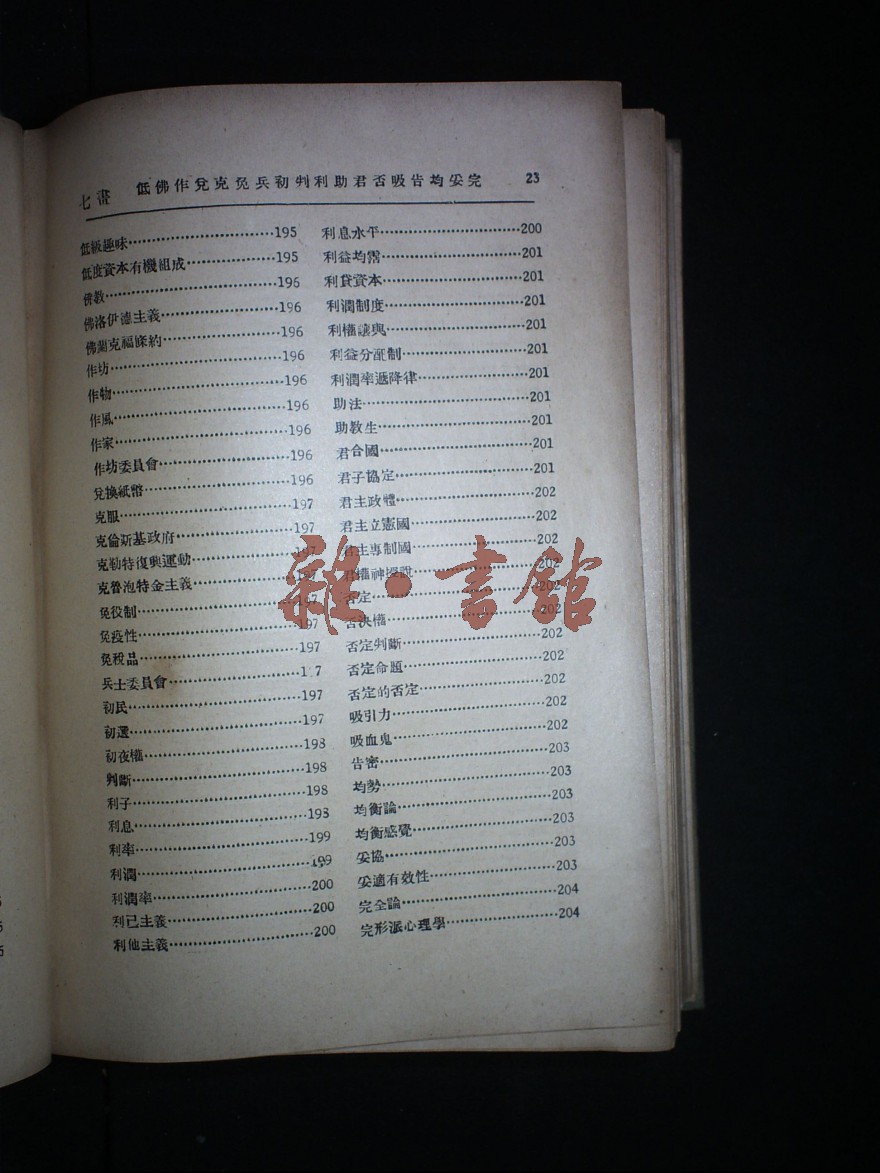 七畫 低佛作兌克免兵初判利助君否吸告均妥完 23
低級趣味……195
低度資本有機組成……195
佛教……196
佛洛伊德主義……196
佛蘭克福條約……196
作坊……196
作物……196
作風……196
作家……196
作坊委員會……196
兌換紙幣……196
克服……197
克倫斯基政府……197
克勒特復興運動……197
克魯泡特金主義……197
免役制……197
免疫性……197
免稅品……197
兵士委員會……1 7
初民……197
初選……197
初夜權……198
判斷……198
利子……198
利息……198
利率……199
利潤……199
利潤率……200
利己主義……200
利他主義……200
利息水平……200
利益均霑……201
利貸資本……201
利潤制度……201
利權讓與……201
利益分配制……201
利潤率遞降律……201
助法……201
助教生……201
君合國……201
君子協定……201
君主政體……202
君主立憲國……202
君主專制國……202
君權神授說……202
否定……202
否決權……202
否定判斷……202
否定命題……202
否定的否定……202
吸引力……202
吸血鬼……202
告密……203
均勢……203
均衡論……203
均衡感覺……203
妥協……203
妥適有效性……203
完全論……204
完形派心理學……204
雜·書館
5
5